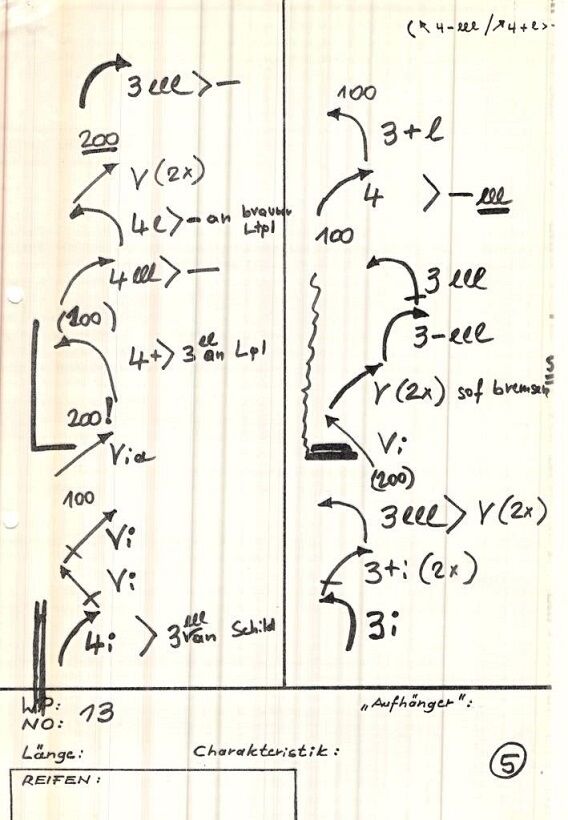 3 lll > —
200
V (2x)
4 l > — an brauner Ltpl
4 lll > —
(100)
4+ > 3 ll an Lpl
200!
Via
100
Vi
Vi
4i > 3 lll an Schild
(↖ 4-lll / ↗ 4+l >-
100
3+l
4 > — lll
100
3 lll
3-lll
V (2x) sof bremsen
Vi
(200)
3 lll > V (2x)
3+i (2x)
3i
WP:
NO: 13
„Aufhänger":
Länge:
Charakteristik:
5
REIFEN: